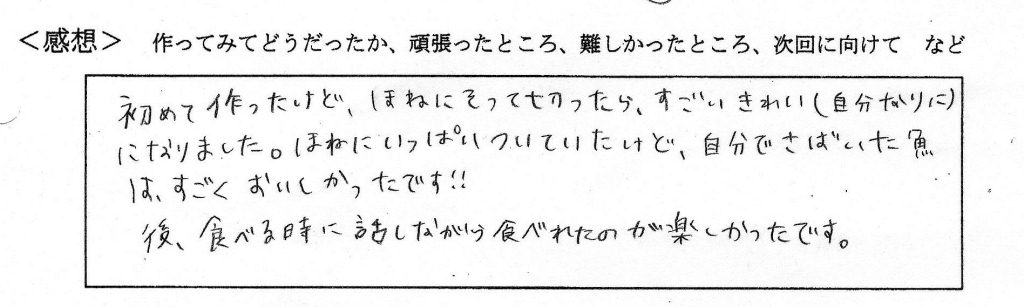 ＜感想＞ 作ってみてどうだったか、頑張ったところ、難しかったところ、次回に向けて など
初めて作ったけど、ほねにそって切ったら、すごいきれい(自分なりに)
になりました。ほねにいっぱいついていたけど、自分でさばいた魚
は、すごくおいしかったです!!
後、食べる時に話しながら食べれたのが楽しかったです。